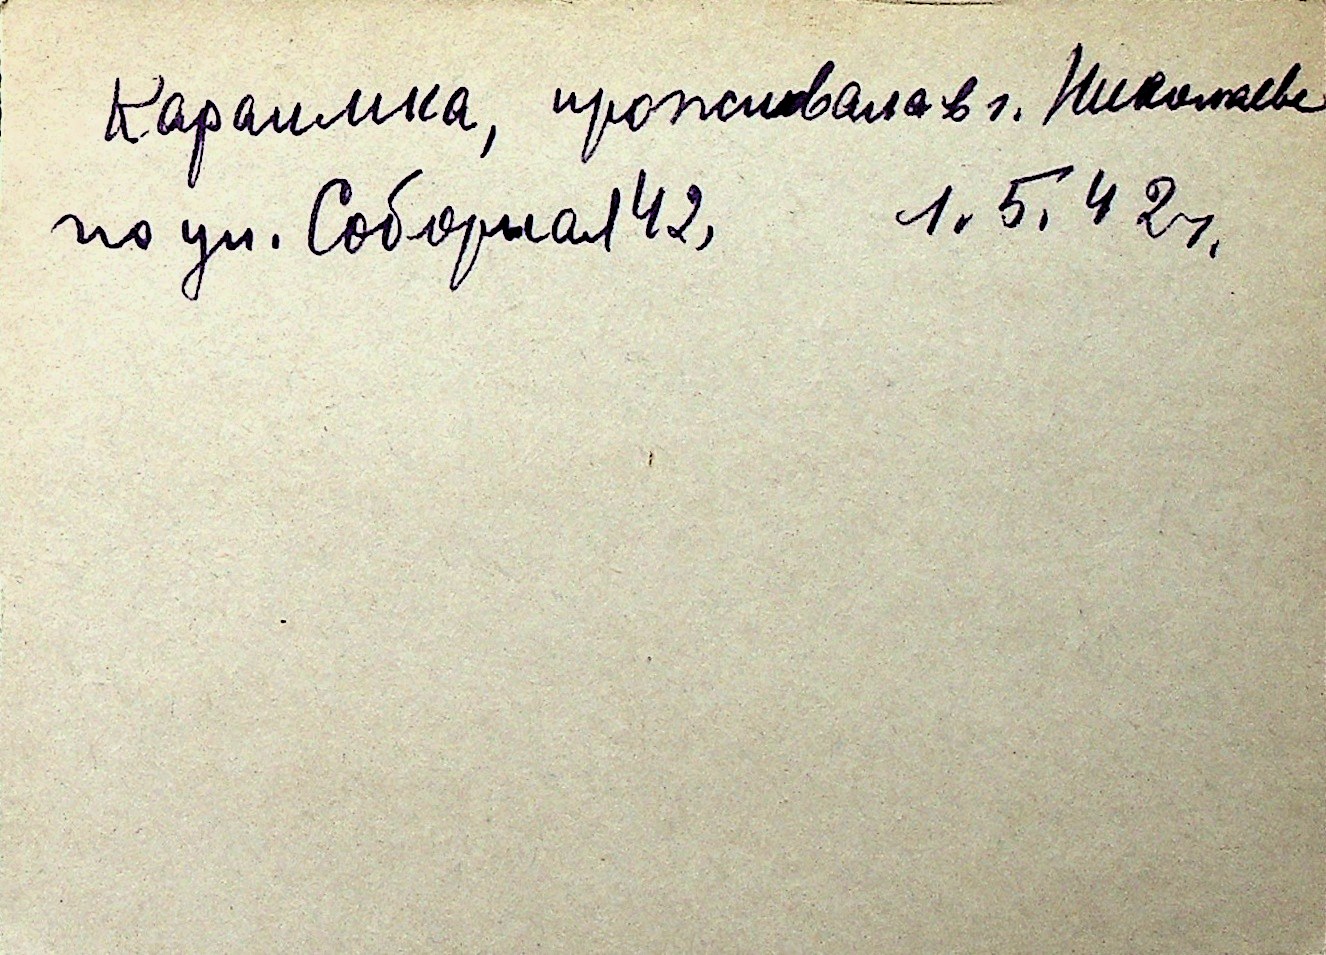 Караимка, проживала в г. Николаеве
по ул. Соборная 42, 1.5.42 г.